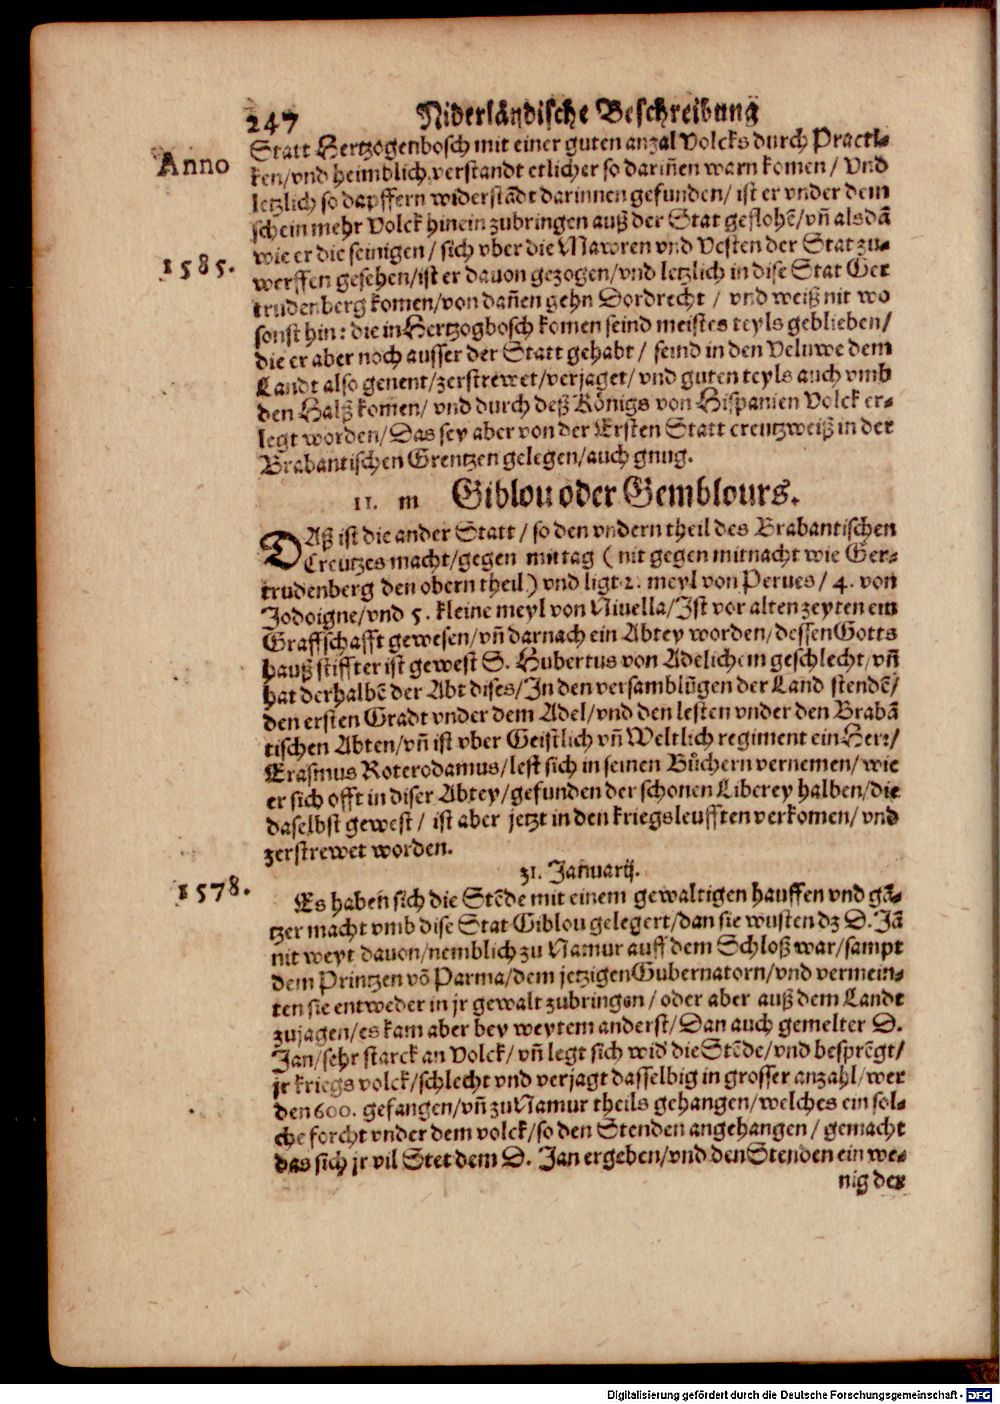 247 Niderländische Beschreibung
Anno
Statt Hertzogenbosch mit einer guten anzal Volcks durch Practi-
ken/vnd heimblich verstandt etlicher so dariñen warn komen/ Vnd
letzlich so dapffern widerstãdt darinnen gefunden/ ist er vnder dem
schein mehr Volck hinein zubringen auß der Stat geflohẽ/vñ als dã
1585.
wie er die seinigen/ sich vber die Mawren vnd Vesten der Stat zu-
werffen gesehen/ist er dauon gezogen/vnd letzlich in dise Stat Ger
trudenberg komen/von dañen gehn Dordrecht/ vnd weiß nit wo
sonst hin: die in Hertzogbosch komen seind meistes teyls geblieben/
die er aber noch ausser der Statt gehabt/ seind in den Veluwe dem
Landt also genent/zerstrewet/verjaget/vnd guten teyls auch vmb
den Halß komen/ vnd durch deß Königs von Hispanien Volck er-
legt worden/Das sey aber von der Ersten Statt creutzweiß in der
Brabantischen Grentzen gelegen/auch gnug.
11. m Giblou oder Gemblours.
DAß ist die ander Statt/so den vndern theil des Brabantischen
Creutzes macht/gegen mittag (nit gegen mitnacht wie Ger-
trudenberg den obern theil) vnd ligt 2. meyl von Perues/ 4. von
Jodoigne/vnd 5. kleine meyl von Niuella/Ist vor alten zeyten ein
Graffschafft gewesen/vñ darnach ein Abtey worden/dessen Gotts
hauß stiffter ist gewest S. Hubertus von Adelichem geschlecht/vñ
hat derhalbẽ der Abt dises/In den versamblũgen der Land stendẽ/
den ersten Gradt vnder dem Adel/vnd den lesten vnder den Brabã
tischen Abten/vñ ist vber Geistlich vñ Weltlich regiment ein Herr/
Erasmus Roterodamus/lest sich in seinen Bůchern vernemen/wie
er sich offt in diser Abtey/gefunden der schonen Liberey halben/die
daselbst gewest/ ist aber jetzt in den kriegsleufften verkomen/vnd
zerstrewet worden.
31. Januarij.
1578.
Es haben sich die Stẽde mit einem gewaltigen hauffen vnd gã-
tzer macht vmb dise Stat Giblou gelegert/dan sie wusten dz D. Jã
nit weyt dauon/nemblich zu Namur auff dem Schloß war/sampt
dem Printzen võ Parma/dem jetzigen Gubernatorn/vnd vermein-
ten sie entweder in jr gewalt zubringen/ oder aber auß dem Landt
zujagen/es kam aber bey weytem anderst/Dan auch gemelter D.
Jan/sehr starck an Volck/vñ legt sich wid die Stẽde/vnd besprẽgt/
jr kriegs volck/schlecht vnd verjagt dasselbig in grosser anzahl/wer
den 600. gefangen/vñ zu Namur theils gehangen/welches ein sol-
che forcht vnder dem volck/so den Stenden angehangen/ gemacht
das sich jr vil Stet dem D. Jan ergeben/vnd den Stenden ein we-
nig der
Digitalisierung gefördert durch die Deutsche Forschungsgemeinschaft - DFG